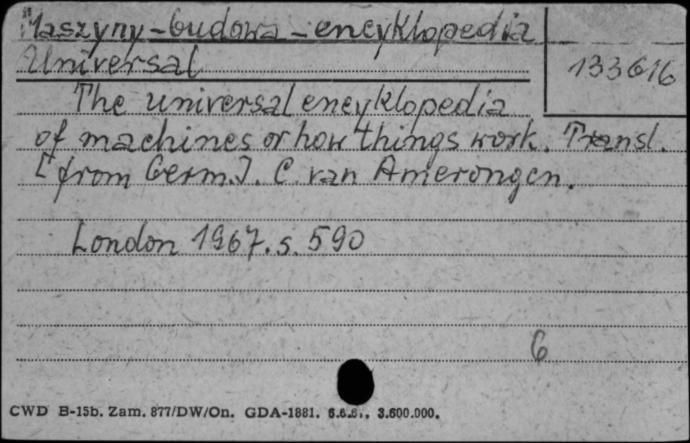 Maszyny - budowa - encyklopedia
Universal
133616
The universal encyklopedia
of machines or how things work. Transl.
[from Germ.]. C. van Amerongen.
London 1967. s. 590
6
CWD B-15b. Zam. 877/DW/On. GDA-1881. 3.600.000.